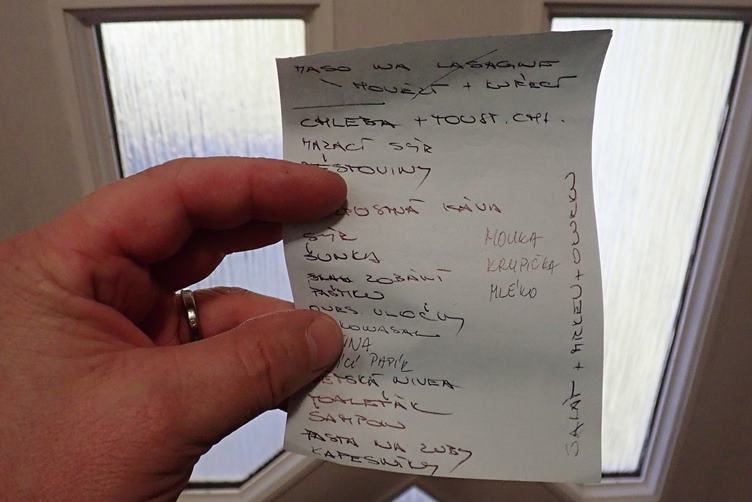 MASO NA LASAGNE
HOVĚZÍ + KUŘECÍ
CHLEBA + TOUST. CHL.
MAZACÍ SÝR
TĚSTOVINY
KÁVA
SÝR
ŠUNKA
ZOBÁNÍ
PAŠTIKU
VLOČKY
PAPÍR
DĚTSKÁ NIVEA
TOALEŤÁK
ŠAMPON
PASTA NA ZUBY
KAPESNÍKY
MOUKA
KRUPIČKA
MLÉKO
SALÁT + MRKEV + OKURKU